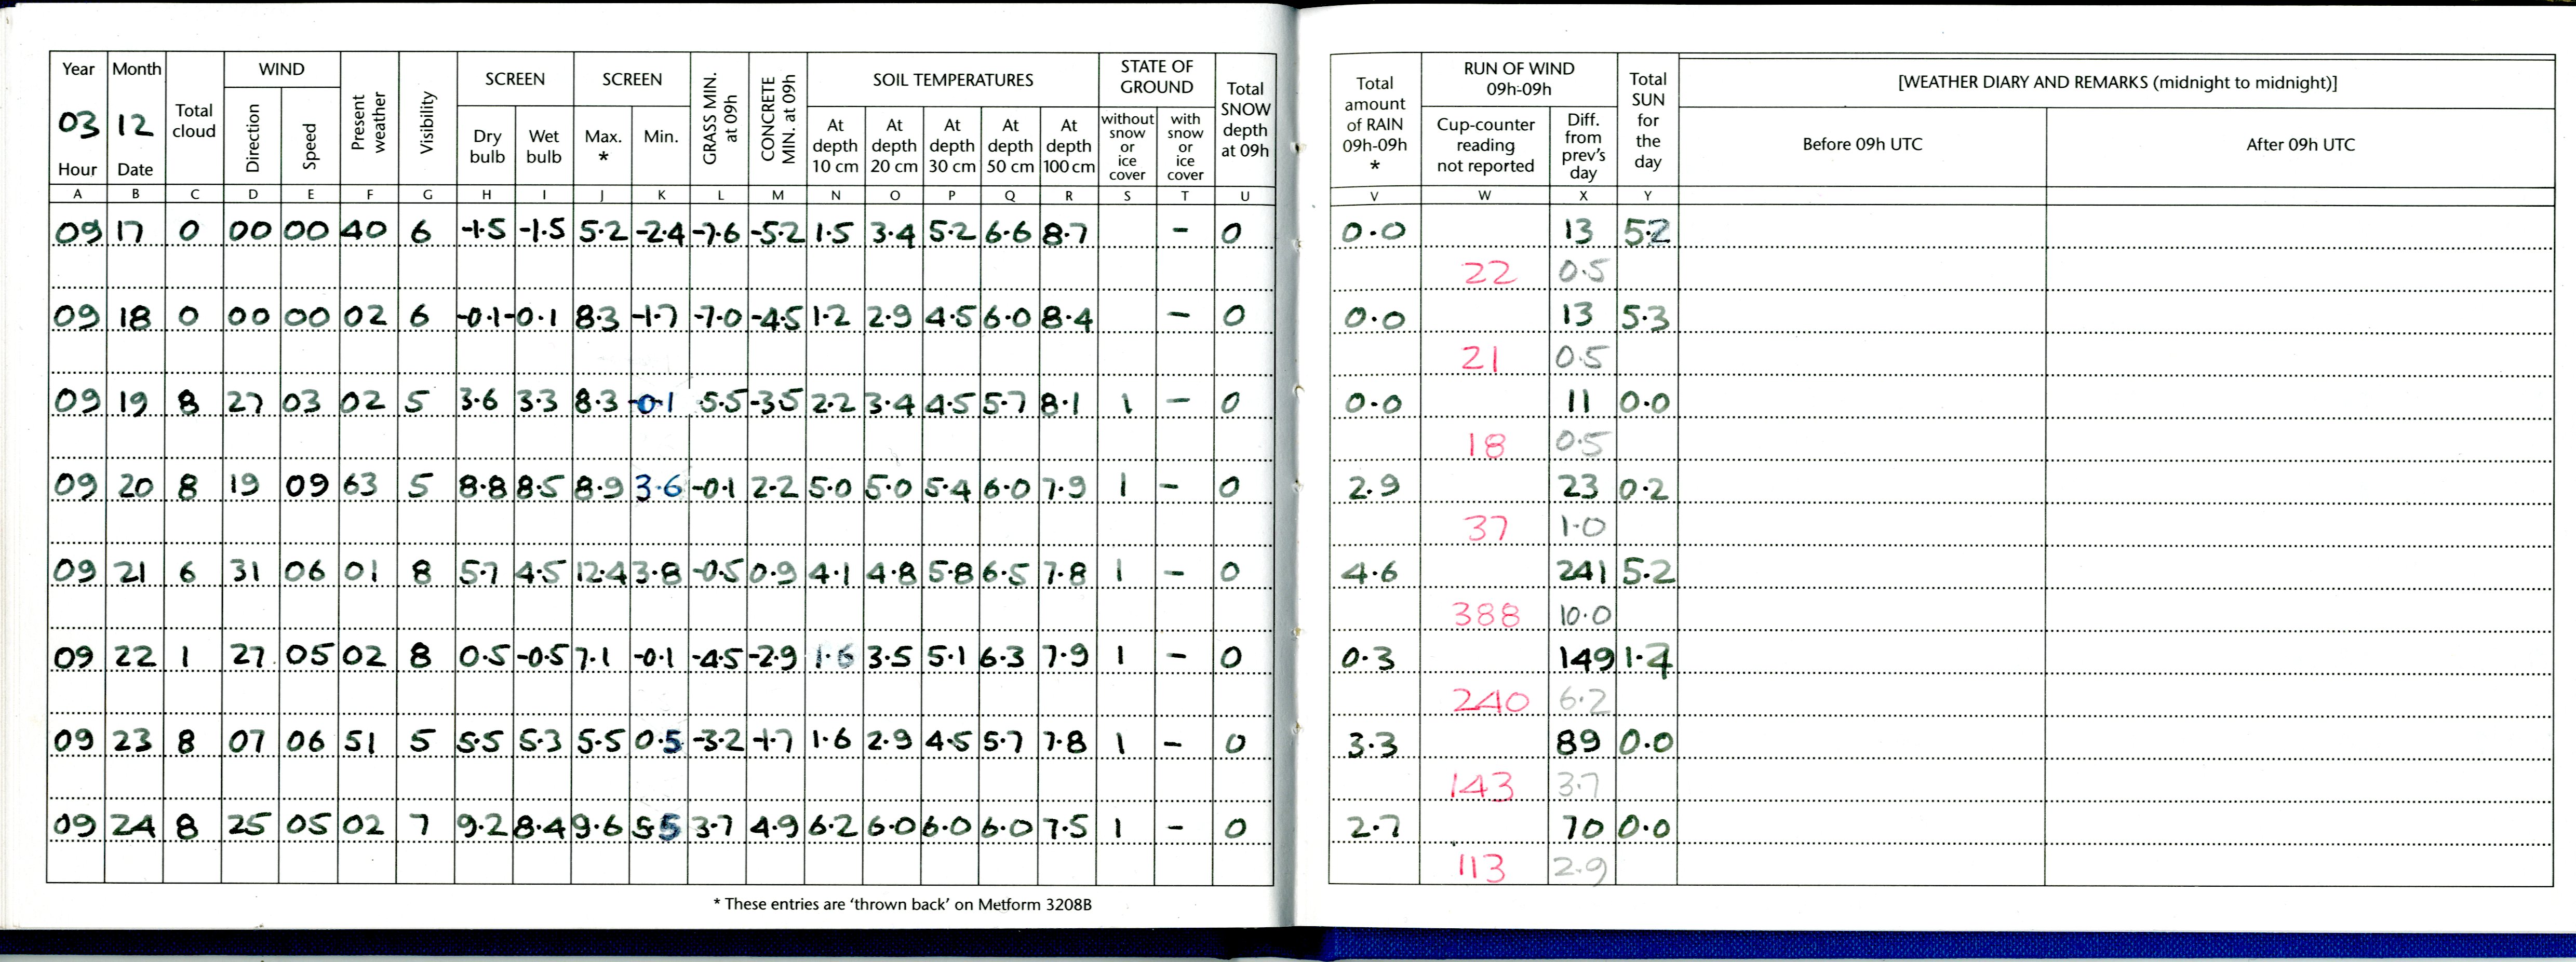 Year Month Total cloud WIND Present weather Visibility SCREEN SCREEN GRASS MIN. at 09h CONCRETE MIN. at 09h SOIL TEMPERATURES STATE OF GROUND Total SNOW depth at 09h Total amount of RAIN 09h-09h * RUN OF WIND 09h-09h Total SUN for the day [WEATHER DIARY AND REMARKS (midnight to midnight)]
03 12 Direction Speed Dry bulb Wet bulb Max. * Min. At depth 10 cm At depth 20 cm At depth 30 cm At depth 50 cm At depth 100 cm without snow or ice cover with snow or ice cover Cup-counter reading not reported Diff. from prev's day Before 09h UTC After 09h UTC
Hour Date
A B C D E F G H I J K L M N O P Q R S T U V W X Y
09 17 0 00 00 40 6 -1.5 -1.5 5.2 -2.4 -7.6 -5.2 1.5 3.4 5.2 6.6 8.7 - 0 0.0 13 5.2
22 0.5
09 18 0 00 00 02 6 -0.1 -0.1 8.3 -1.7 -7.0 -4.5 1.2 2.9 4.5 6.0 8.4 - 0 0.0 13 5.3
21 0.5
09 19 8 27 03 02 5 3.6 3.3 8.3 -0.1 -5.5 -3.5 2.2 3.4 4.5 5.7 8.1 1 - 0 0.0 11 0.0
18 0.5
09 20 8 19 09 63 5 8.8 8.5 8.9 3.6 -0.1 2.2 5.0 5.0 5.4 6.0 7.9 1 - 0 2.9 23 0.2
37 1.0
09 21 6 31 06 01 8 5.7 4.5 12.4 3.8 -0.5 0.9 4.1 4.8 5.8 6.5 7.8 1 - 0 4.6 241 5.2
388 10.0
09 22 1 27 05 02 8 0.5 -0.5 7.1 -0.1 -4.5 -2.9 1.6 3.5 5.1 6.3 7.9 1 - 0 0.3 149
240 6.2
09 23 8 07 06 51 5 5.5 5.3 5.5 0.5 -3.2 -1.7 1.6 2.9 4.5 5.7 7.8 1 - 0 3.3 89 0.0
143 3.7
09 24 8 25 05 02 7 9.2 8.4 9.6 5.5 3.7 4.9 6.2 6.0 6.0 6.0 7.5 1 - 0 2.7 70 0.0
113 2.9
* These entries are 'thrown back' on Metform 3208B